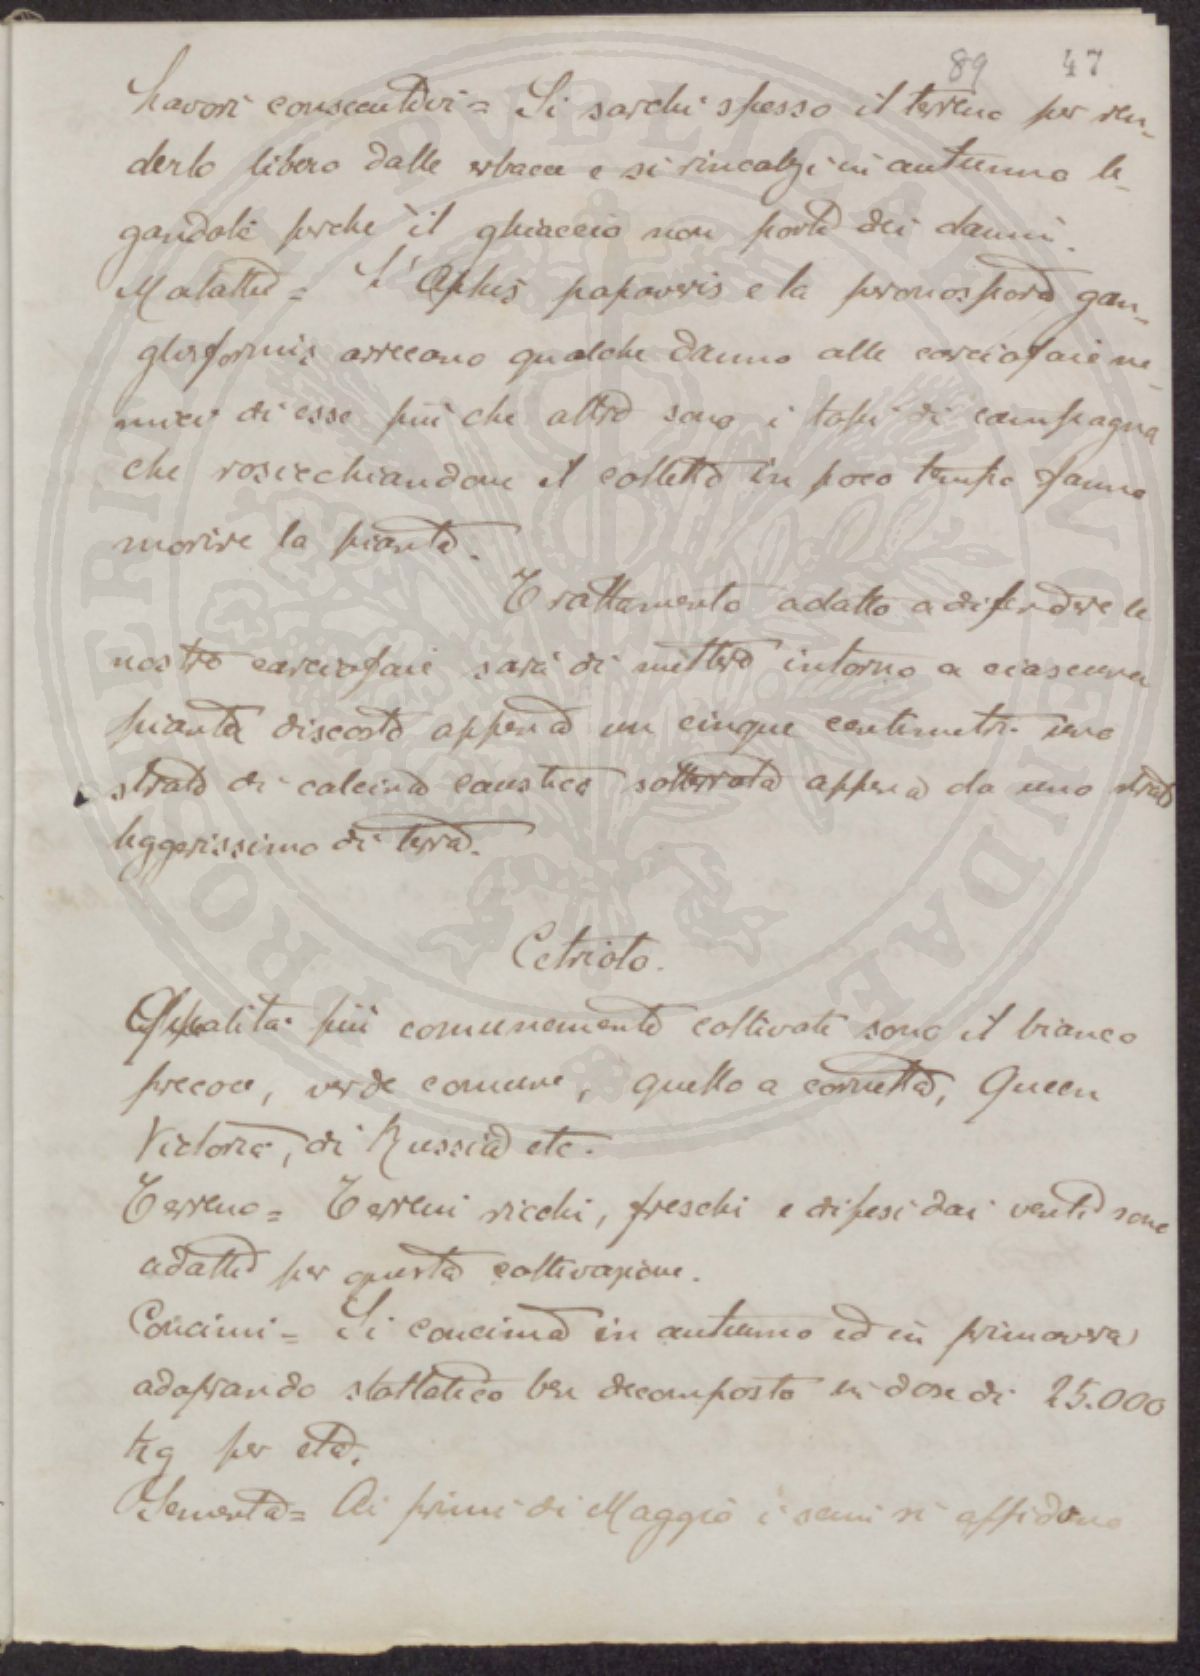 89 47
Lavori consecutivi = Si sarchi spesso il terreno per ren-
derlo libero dalle erbacce e si rincalzi in autunno le-
gandole perchè il ghiaccio non porti dei danni.
Malattie = L'Aphis papaveris e la peronospora gan-
gliformis arrecano qualche danno alle carciofaie ne-
mici di esse più che altro sono i topi di campagna
che rosicchiandone il colletto in poco tempo fanno
morire la pianta.
Trattamento adatto a difendere le
nostre carciofaie sarà di mettere intorno a ciascuna
pianta discosto appena un cinque centimetri uno
strato di calcina caustica sotterrata appena da uno strato
leggerissimo di terra.
Cetriolo.
Qualità più comunemente coltivate sono il bianco
precoce, verde comune, quello a cornetto, Queen
Victoria, di Russia etc.
Terreno = Terreni ricchi, freschi e difesi dai venti sono
adatti per questa coltivazione.
Concimi = Si concima in autunno ed in primavera
adoprando stallatico ben decomposto in dose di 25.000
Kg per etto.
Sementa = Ai primi di Maggio i semi si affidano
PROSPERITATI PUBLICAE AUGENDAE